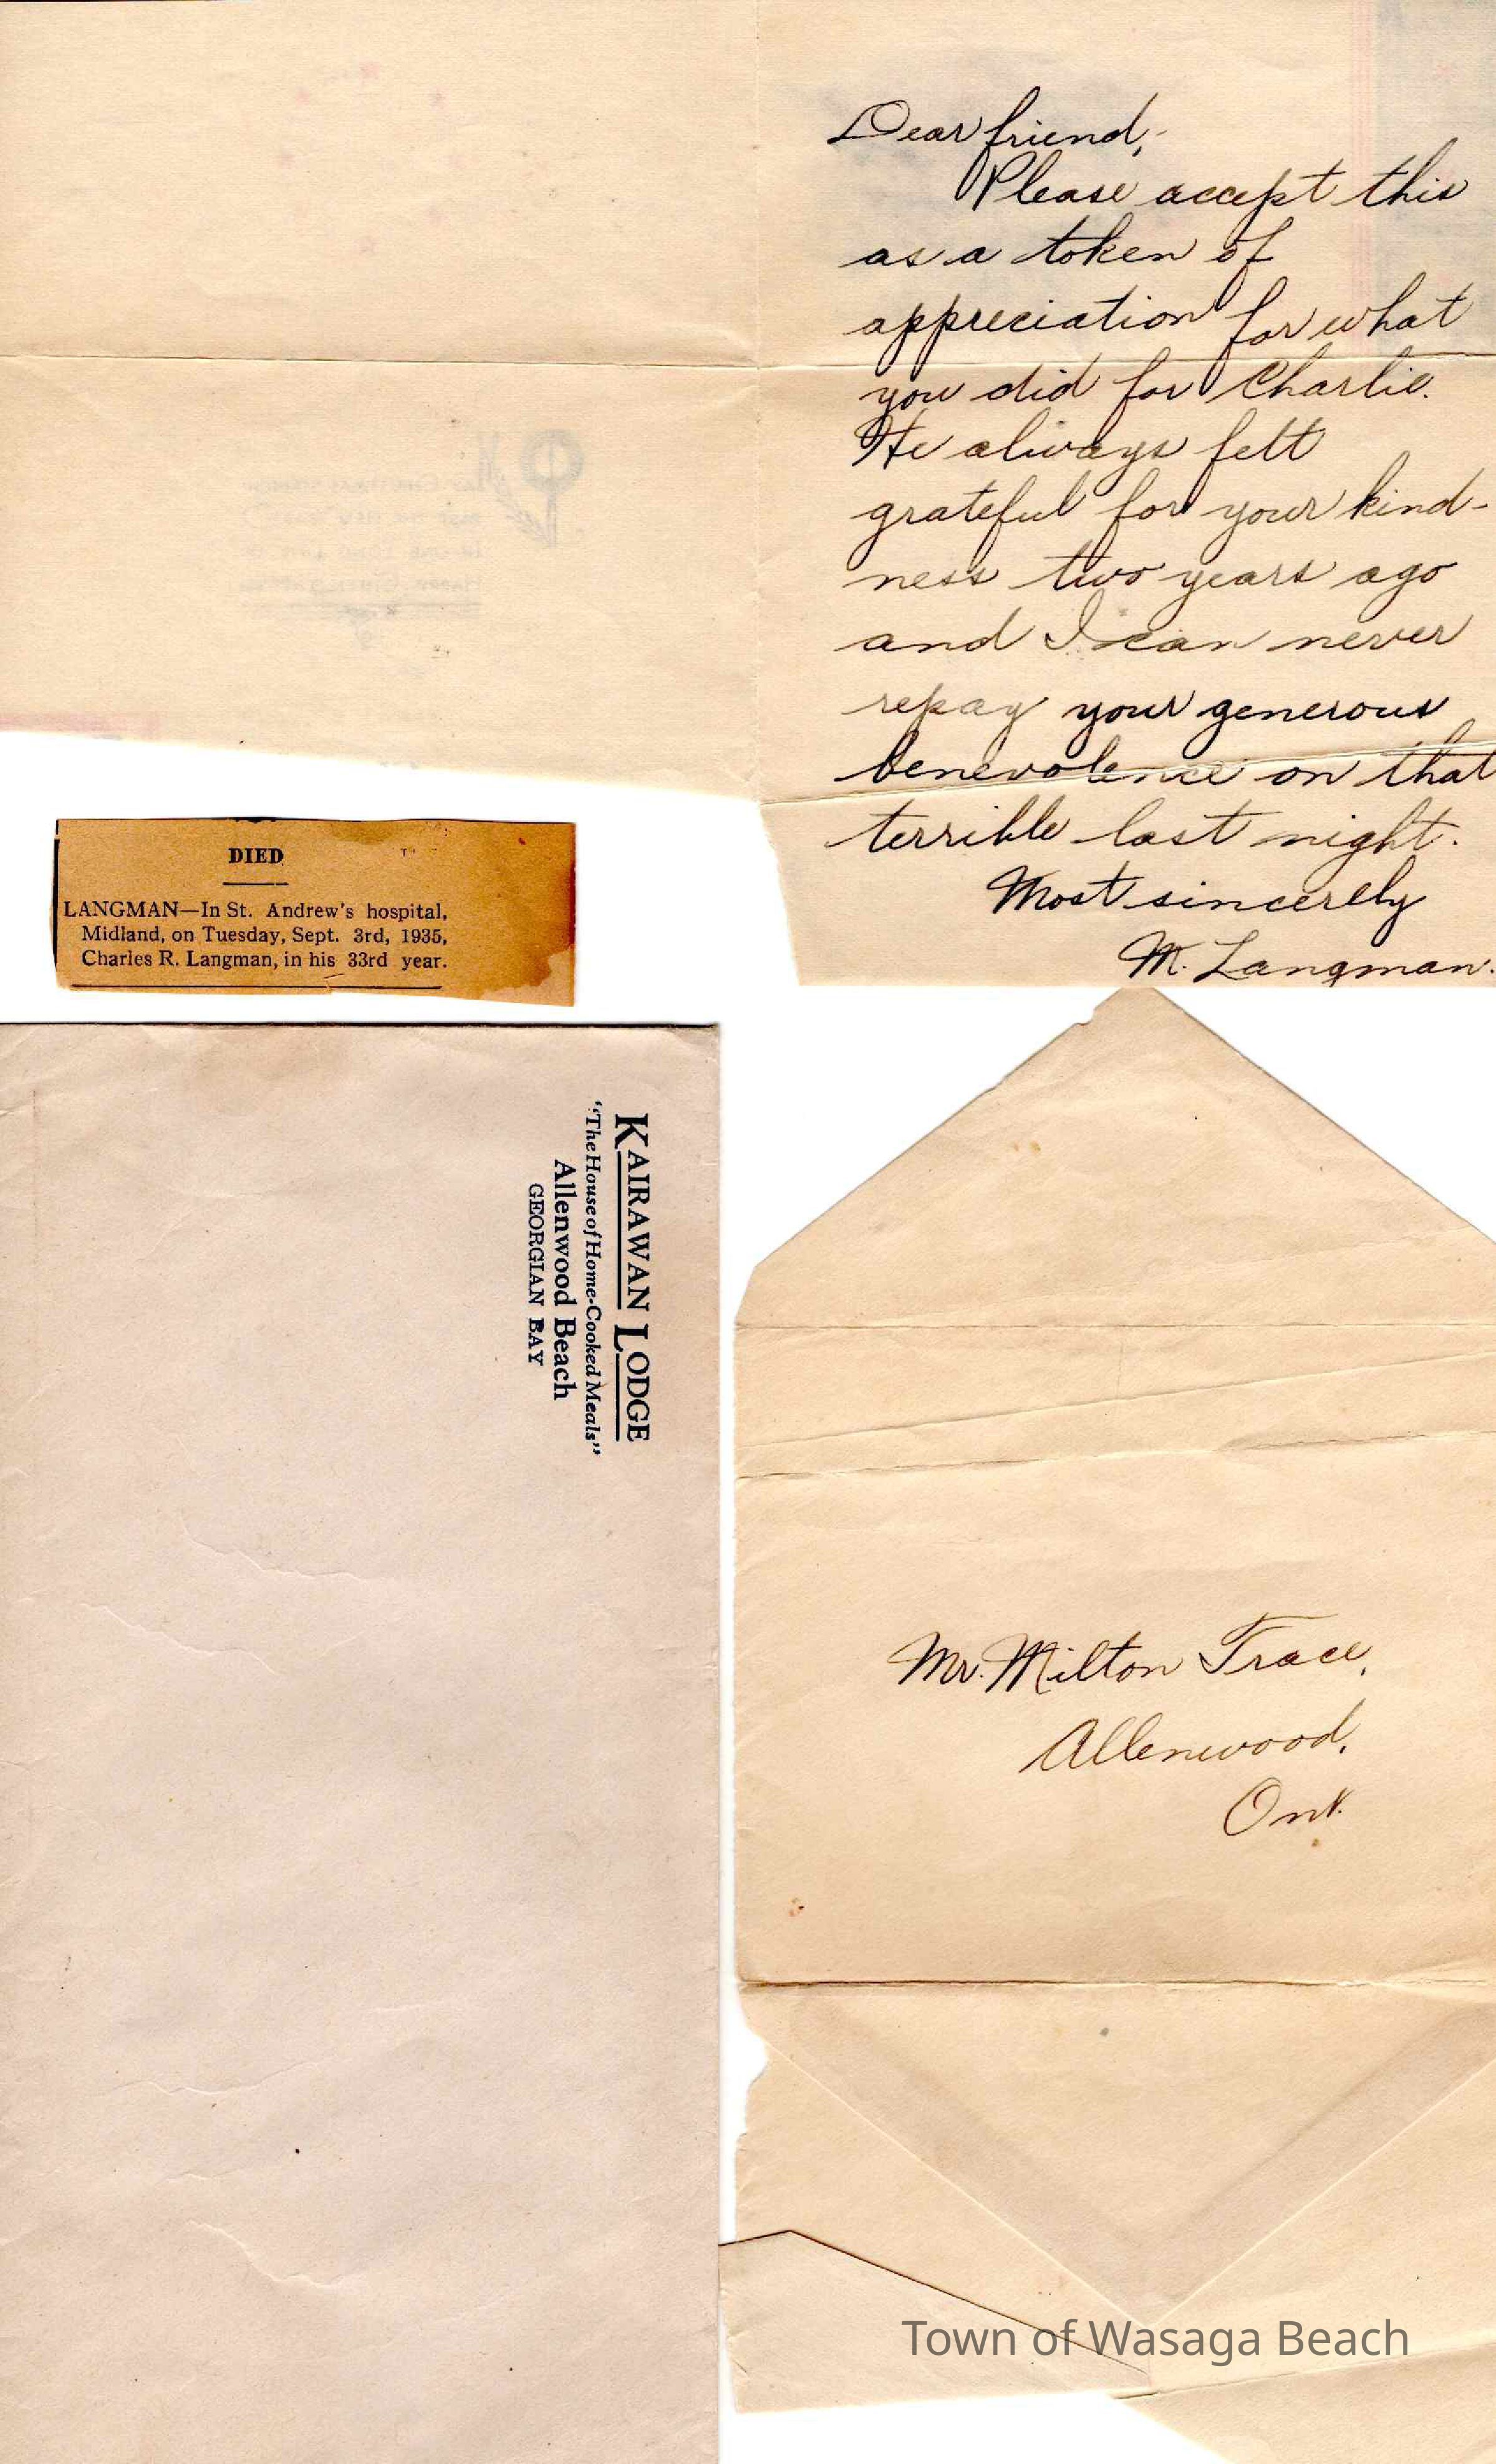 Dear friend,-
Please accept this
as a token of
appreciation for what
you did for Charlie.
He always felt
grateful for your kind-
ness two years ago
and I can never
repay your generous
benevolence on that
terrible last night.
Most sincerely
M. Langman.
DIED
LANGMAN—In St. Andrew's hospital,
Midland, on Tuesday, Sept. 3rd, 1935,
Charles R. Langman, in his 33rd year.
KAIRAWAN LODGE
"The House of Home-Cooked Meals"
Allenwood Beach
GEORGIAN BAY
Mr. Milton Trace,
Allenwood,
Ont.
Town of Wasaga Beach